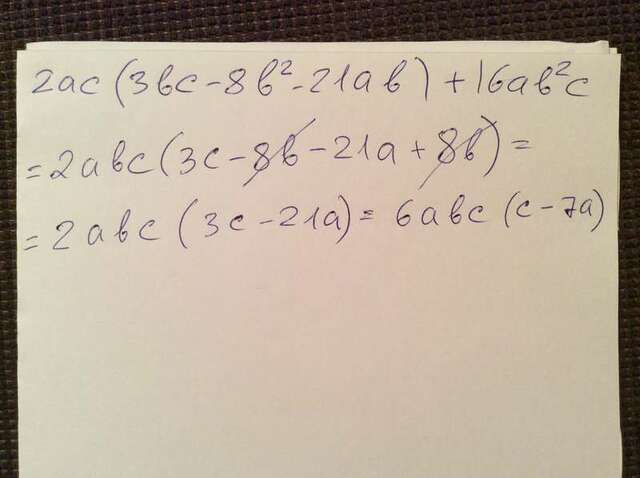 2ac(3bc-8b²-21ab)+16ab²c
=2abc(3c-8b-21a+8b)=
=2abc(3c-21a)=6abc(c-7a)